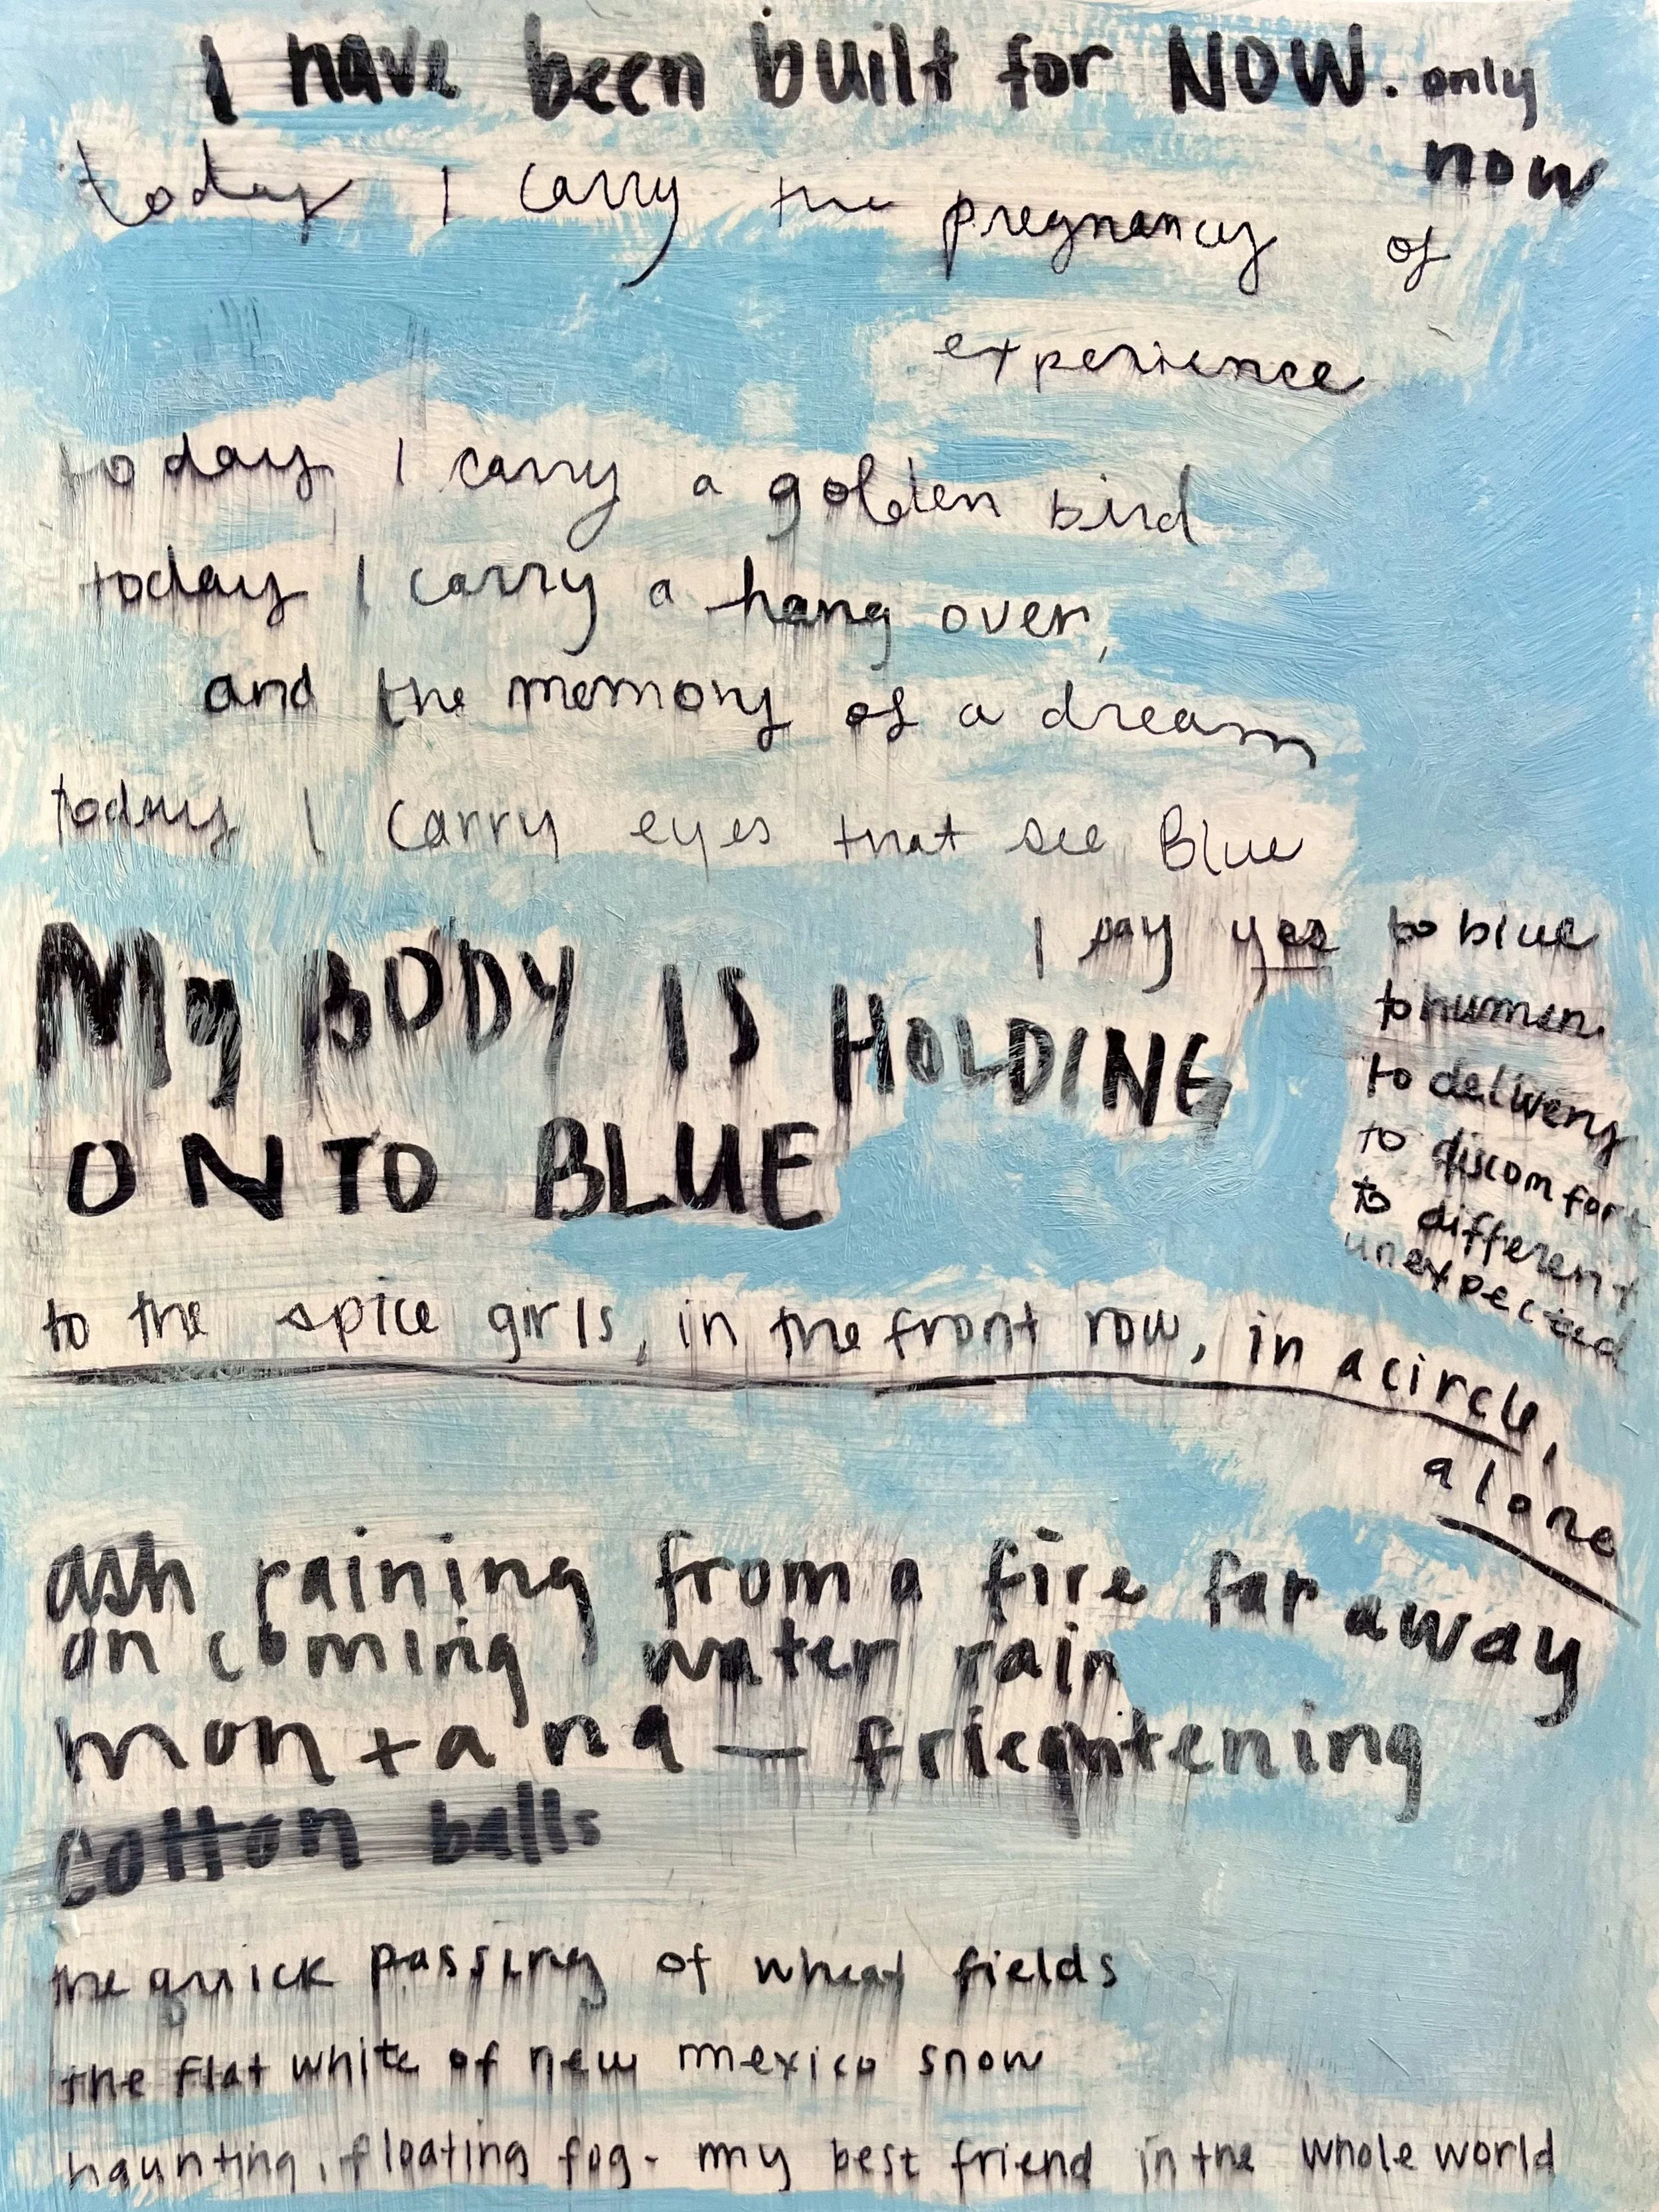 I have been built for NOW. only
now
today I carry the pregnancy of
experience
today I carry a golden bird
today I carry a hang over,
and the memory of a dream
today I carry eyes that see Blue
I say yes to blue
to human
to delivery
to discomfort
to different
unexpected
My BODY IS HOLDING
ONTO BLUE
to the spice girls, in the front row, in a circle,
alone
ash raining from a fire far away
on coming water rain
montana — frieghtening
cotton balls
the quick passing of wheat fields
the flat white of new mexico snow
haunting, floating fog - my best friend in the whole world